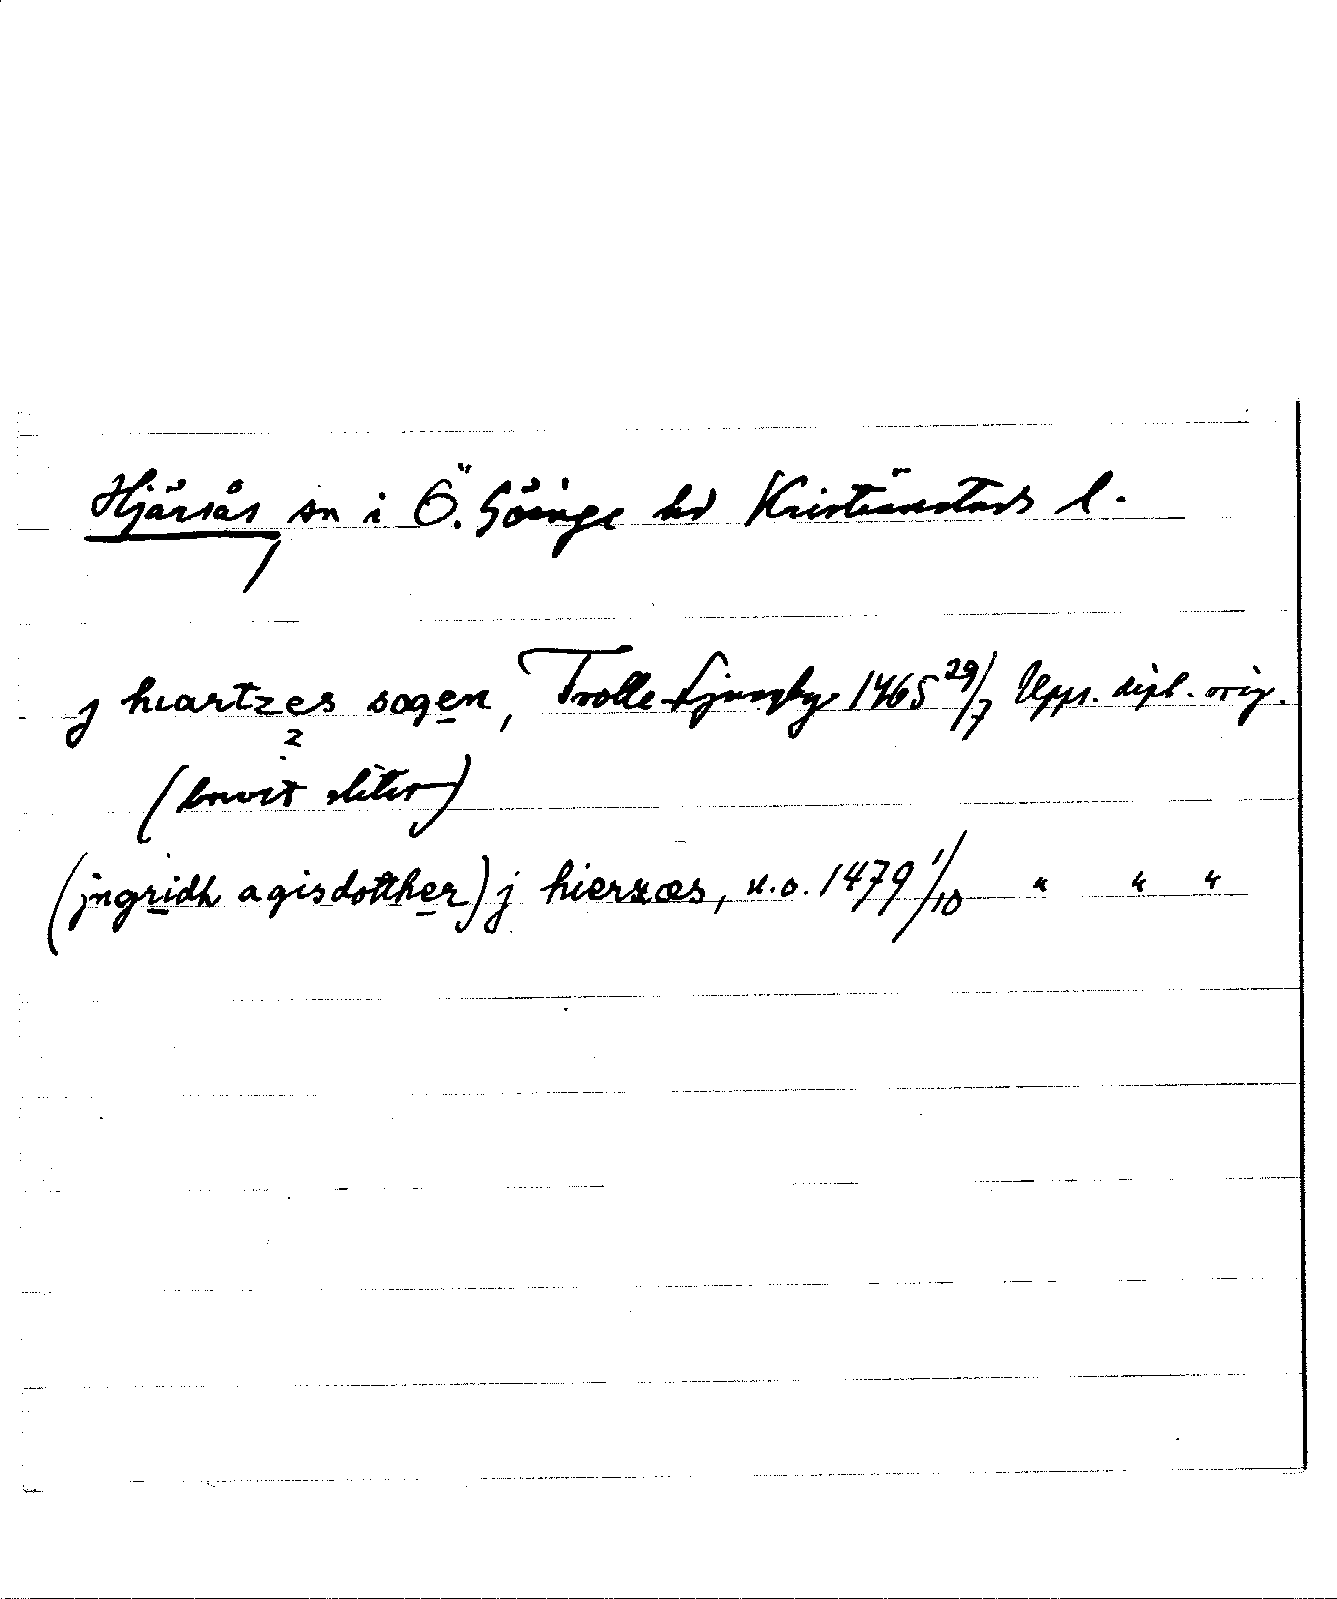 Hjärsås sn i Ö. Göinge hd Kristianstads l.
j hiartzes sogen, Trolle-Ljungby 1465 29/7 Upps. dipl. orig.
z
(knvt)
(jngridh agisdotther) j hierzæs, u.o. 1479 1/10 " " "